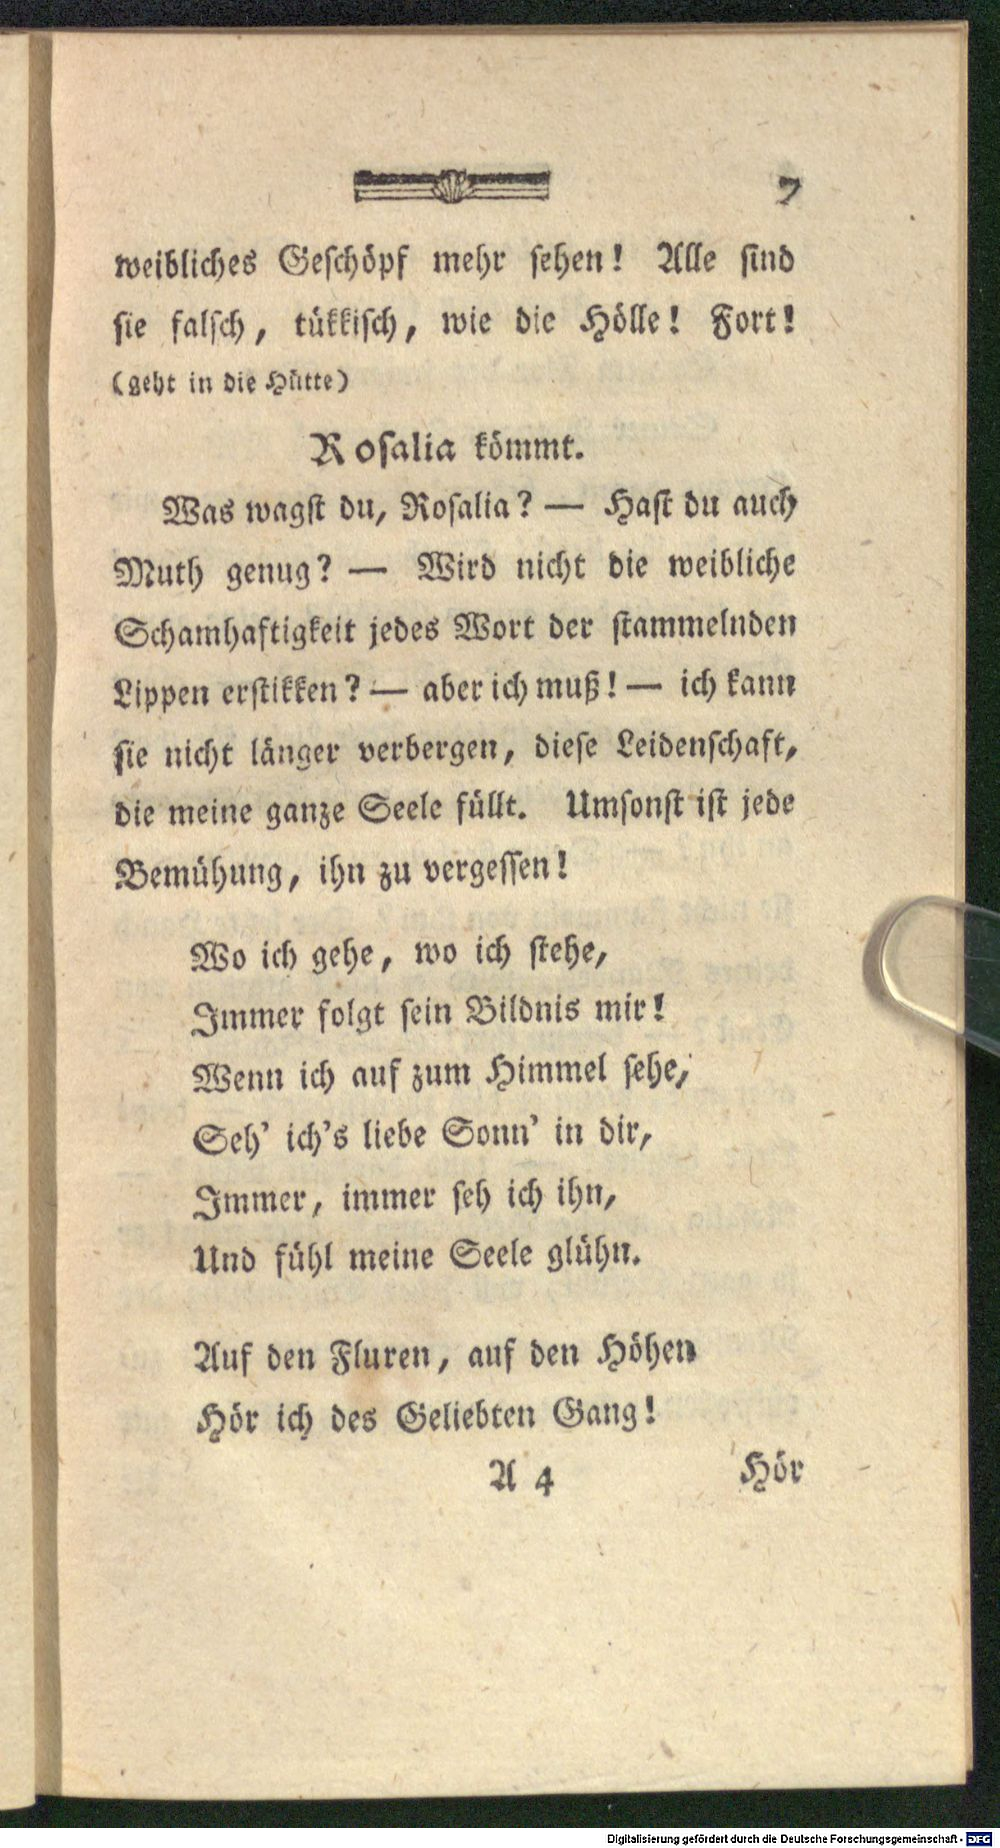 7
weibliches Geschöpf mehr sehen! Alle sind
sie falsch, tükkisch, wie die Hölle! Fort!
(geht in die Hütte)
Rosalia kömmt.
Was wagst du, Rosalia? — Hast du auch
Muth genug? — Wird nicht die weibliche
Schamhaftigkeit jedes Wort der stammelnden
Lippen erstikken? — aber ich muß! — ich kann
sie nicht länger verbergen, diese Leidenschaft,
die meine ganze Seele füllt. Umsonst ist jede
Bemühung, ihn zu vergessen!
Wo ich gehe, wo ich stehe,
Immer folgt sein Bildnis mir!
Wenn ich auf zum Himmel sehe,
Seh' ich's liebe Sonn' in dir,
Immer, immer seh ich ihn,
Und fühl meine Seele glühn.
Auf den Fluren, auf den Höhen
Hör ich des Geliebten Gang!
A 4 Hör
Digitalisierung gefördert durch die Deutsche Forschungsgemeinschaft - DFG